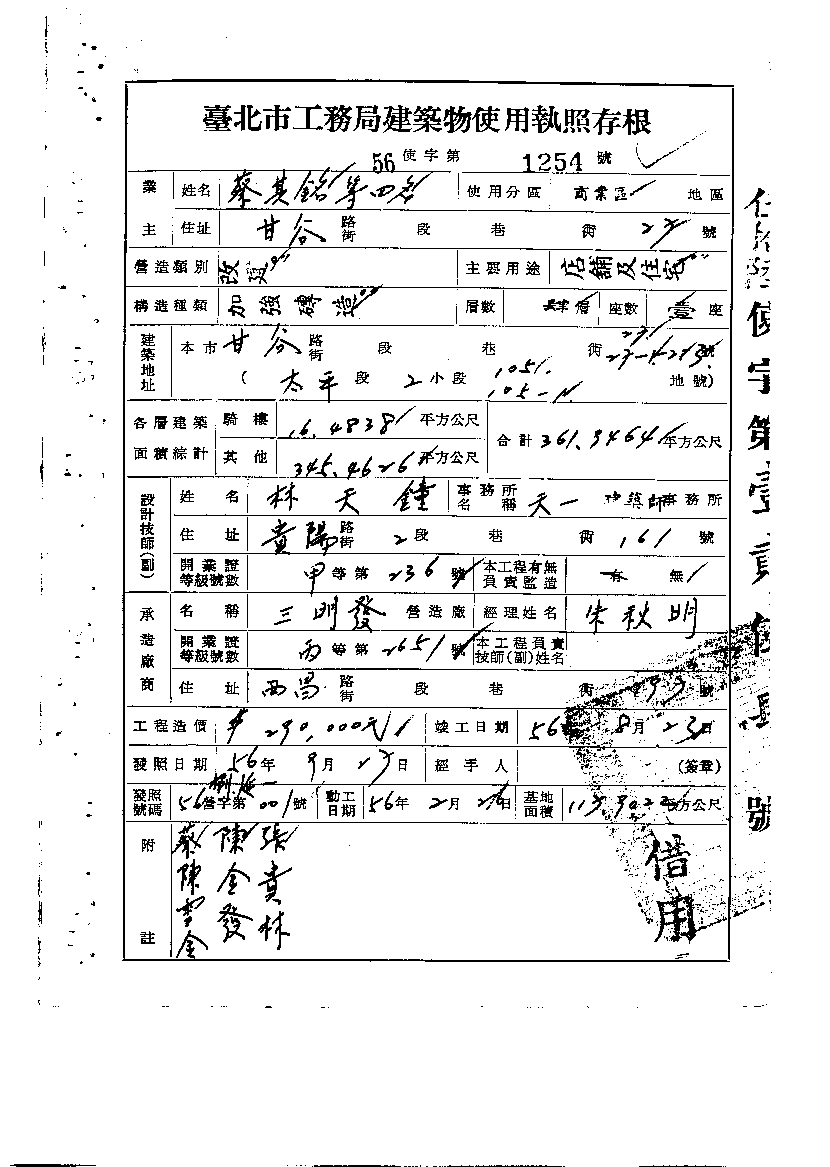 臺北市工務局建築物使用執照存根
56 使字第 1254 號
業主 姓名 蔡其銘等四名 使用分區 商業區 地區
住址 甘谷 路街 段 巷 街 號
營造類別 改建 主要用途 店舖及住宅
構造種類 加強磚造 層數 座數 壹 座
建築地址 本市 甘谷 路街 段 巷 街 號
(太平段 2 小段 地號)
各層建築面積綜計 騎樓 16.4838 平方公尺 合計 361.9464 平方公尺
其他 345.4626 平方公尺
設計技師(副) 姓名 林天鐘 事務所名稱 天一 建築師事務所
住址 貴陽 路街 2 段 巷 街 161 號
開業證等級號數 甲 等第 236 號 本工程有無負責監造 有 無
承造廠商 名稱 三明發 營造廠 經理姓名 朱秋明
開業證等級號數 丙 等第 2651 號 本工程負責技師(副)姓名
住址 西昌 路街 段 巷 街 號
工程造價 $290,000元 竣工日期 56 8月23日
發照日期 56年 9月 27日 經手人 (簽章)
發照號碼 56營字第001號 動工日期 56年2月 日 基地面積 平方公尺
附註
張貴林
陳全發
蔡陳雪金
借用
使字第壹貳伍 號